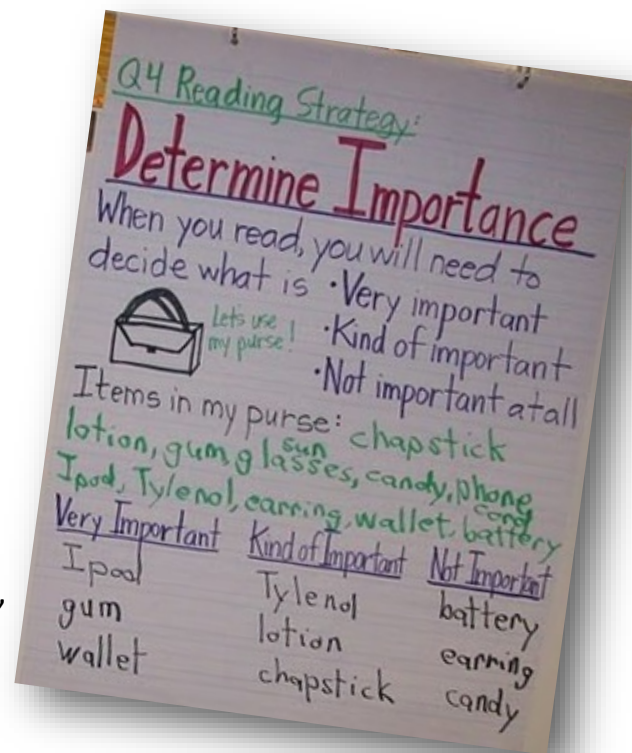 Q4 Reading Strategy:
Determine Importance
When you read, you will need to
decide what is • Very important
• Kind of important
• Not important at all
Lets use
my purse!
Items in my purse: chapstick
lotion, gum, glasses, candy, phone
sun
Ipod, Tylenol, earring, wallet, battery
Very Important Kind of Important Not Important
Ipod Tylenol battery
gum lotion earring
wallet chapstick candy